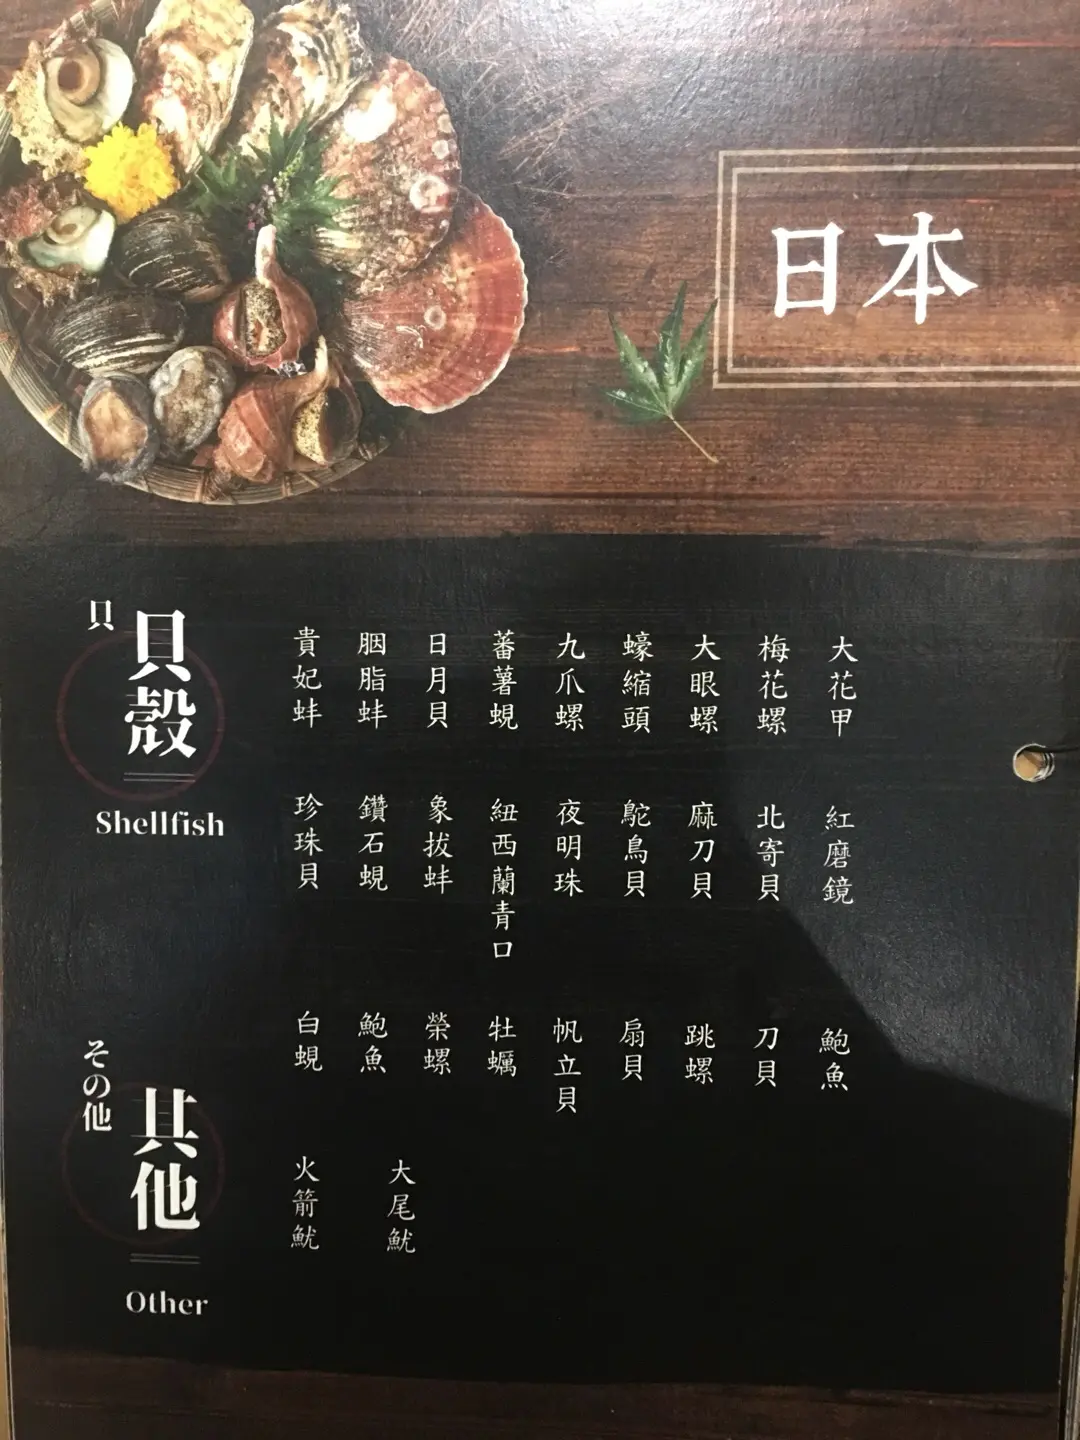 日本
貝
貝殻
Shellfish
貴妃蚌
胭脂蚌
日月貝
蕃薯蜆
九爪螺
蠔縮頭
大眼螺
梅花螺
大花甲
珍珠貝
鑽石蜆
象拔蚌
紐西蘭青口
夜明珠
鴕鳥貝
麻刀貝
北寄貝
紅磨鏡
白蜆
鮑魚
榮螺
牡蠣
帆立貝
扇貝
跳螺
刀貝
鮑魚
その他
其他
Other
火箭魷
大尾魷